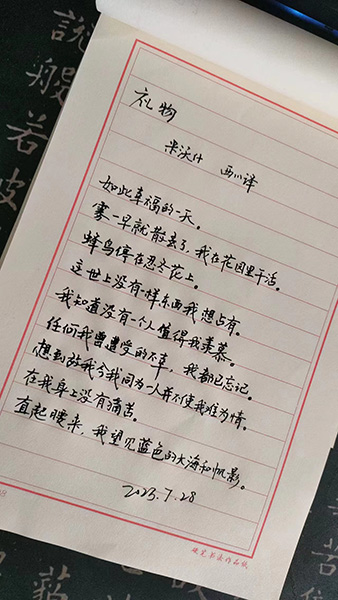 說
般
若
礼物
米沃什 西川译
如此幸福的一天。
雾一早就散去了,我在花园里干活。
蜂鸟停在忍冬花上。
这世上没有一样东西我想占有。
我知道没有一个人值得我羡慕。
任何我曾遭受的不幸,我都已忘记。
想到故我今我同为一人并不使我难为情。
在我身上没有痛苦。
直起腰来,我望见蓝色的大海和帆影。
2023.7.28
硬笔书法作品纸
苦